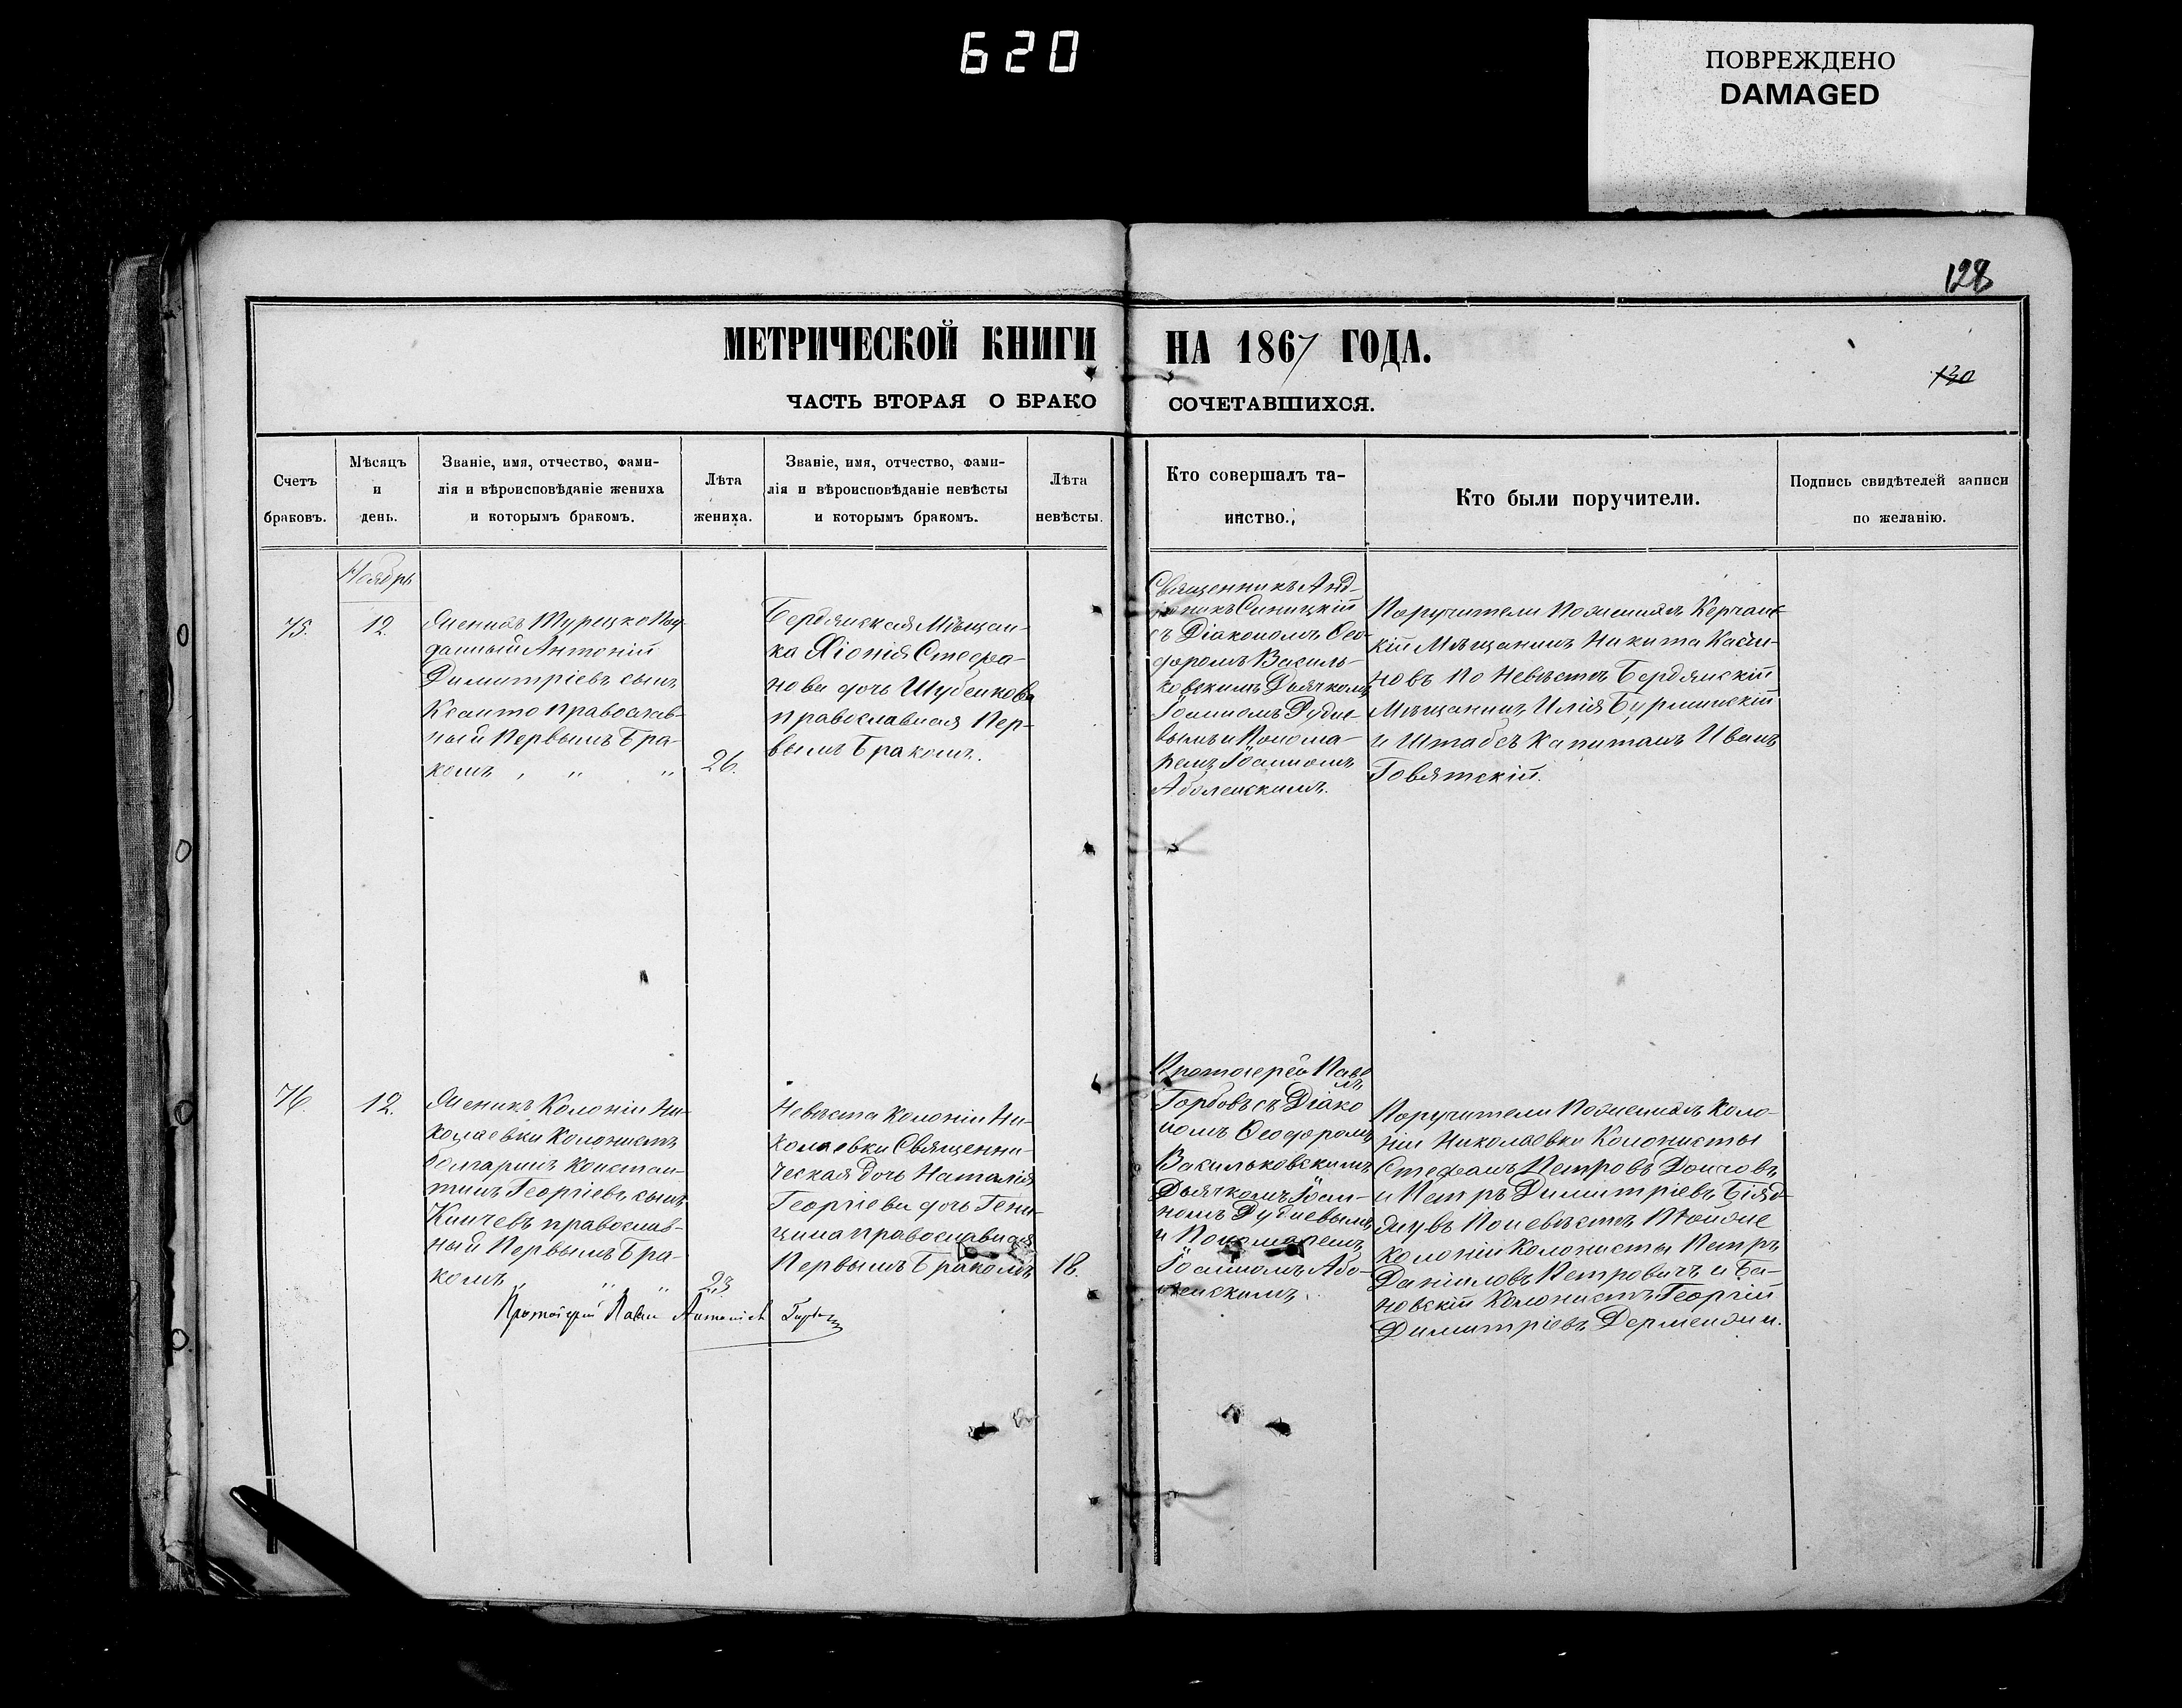 620
ПОВРЕЖДЕНО
DAMAGED
128
МЕТРИЧЕСКОЙ КНИГИ НА 1867 ГОДА.
130
ЧАСТЬ ВТОРАЯ О БРАКО СОЧЕТАВШИХСЯ.
Счетъ
браковъ.
Мѣсяцъ
и
день.
Званіе, имя, отчество, фами-
лія и вѣроисповѣданіе жениха
и которымъ бракомъ.
Лѣта
жениха.
Званіе, имя, отчество, фами-
лія и вѣроисповѣданіе невѣсты
и которымъ бракомъ.
Лѣта
невѣсты.
Кто совершалъ та-
инство.
Кто были поручители.
Подпись свидѣтелей записи
по желанію.
Ноябрь
75.
12.
Женихъ Турецко Под
данный Антоній
Димитріевъ сынъ
Ксанто православ-
ный Первымъ Бра-
комъ
26.
Бердянская Мѣщан-
ка Хіонія Стефа-
нова дочь Шубенкова
православная Пер-
вымъ Бракомъ.
Священникъ Анд-
Синицкій
съ Діакономъ Ѳео-
доромъ Василь-
ковскимъ Дьячкомъ
Іоанномъ Дудне-
вымъ и Понома-
ремъ Іоанномъ
Аболенскимъ.
Поручители По женихѣ Керчанс-
кій Мѣщанинъ Никита Каси-
новъ По Невѣстѣ Бердянскій
Мѣщанинъ Илія Бурлинскій
и Штабсъ Капитанъ Иванъ
Говятскій.
76.
12.
Женихъ Колоніи Ни-
колаевки Колонистъ
болгаринъ Констан-
тинъ Георгіевъ сынъ
Кинчевъ православ-
ный Первымъ Бра-
комъ
23
Невѣста Колоніи Ни-
колаевки Священни-
ческая Дочь Наталія
Георгіева дочь Гени-
цина православная
Первымъ Бракомъ
18.
Протоіерей Павелъ
Горбовъ съ Діако
номъ Ѳеодоромъ
Васильковскимъ
Дьячкомъ Іоан-
номъ Дудневымъ
и Пономаремъ
Іоанномъ Або-
ленскимъ.
Поручители По женихѣ Коло-
ніи Николаевки Колонисты
Стефанъ Петровъ Дончовъ
и Петръ Димитріевъ
По невѣстѣ
Колоніи Колонисты Петръ
Даніиловъ Петровичъ и Ба-
новскій Колонистъ Георгій
Димитріевъ Дерменджи.
Протоіерей Павелъ